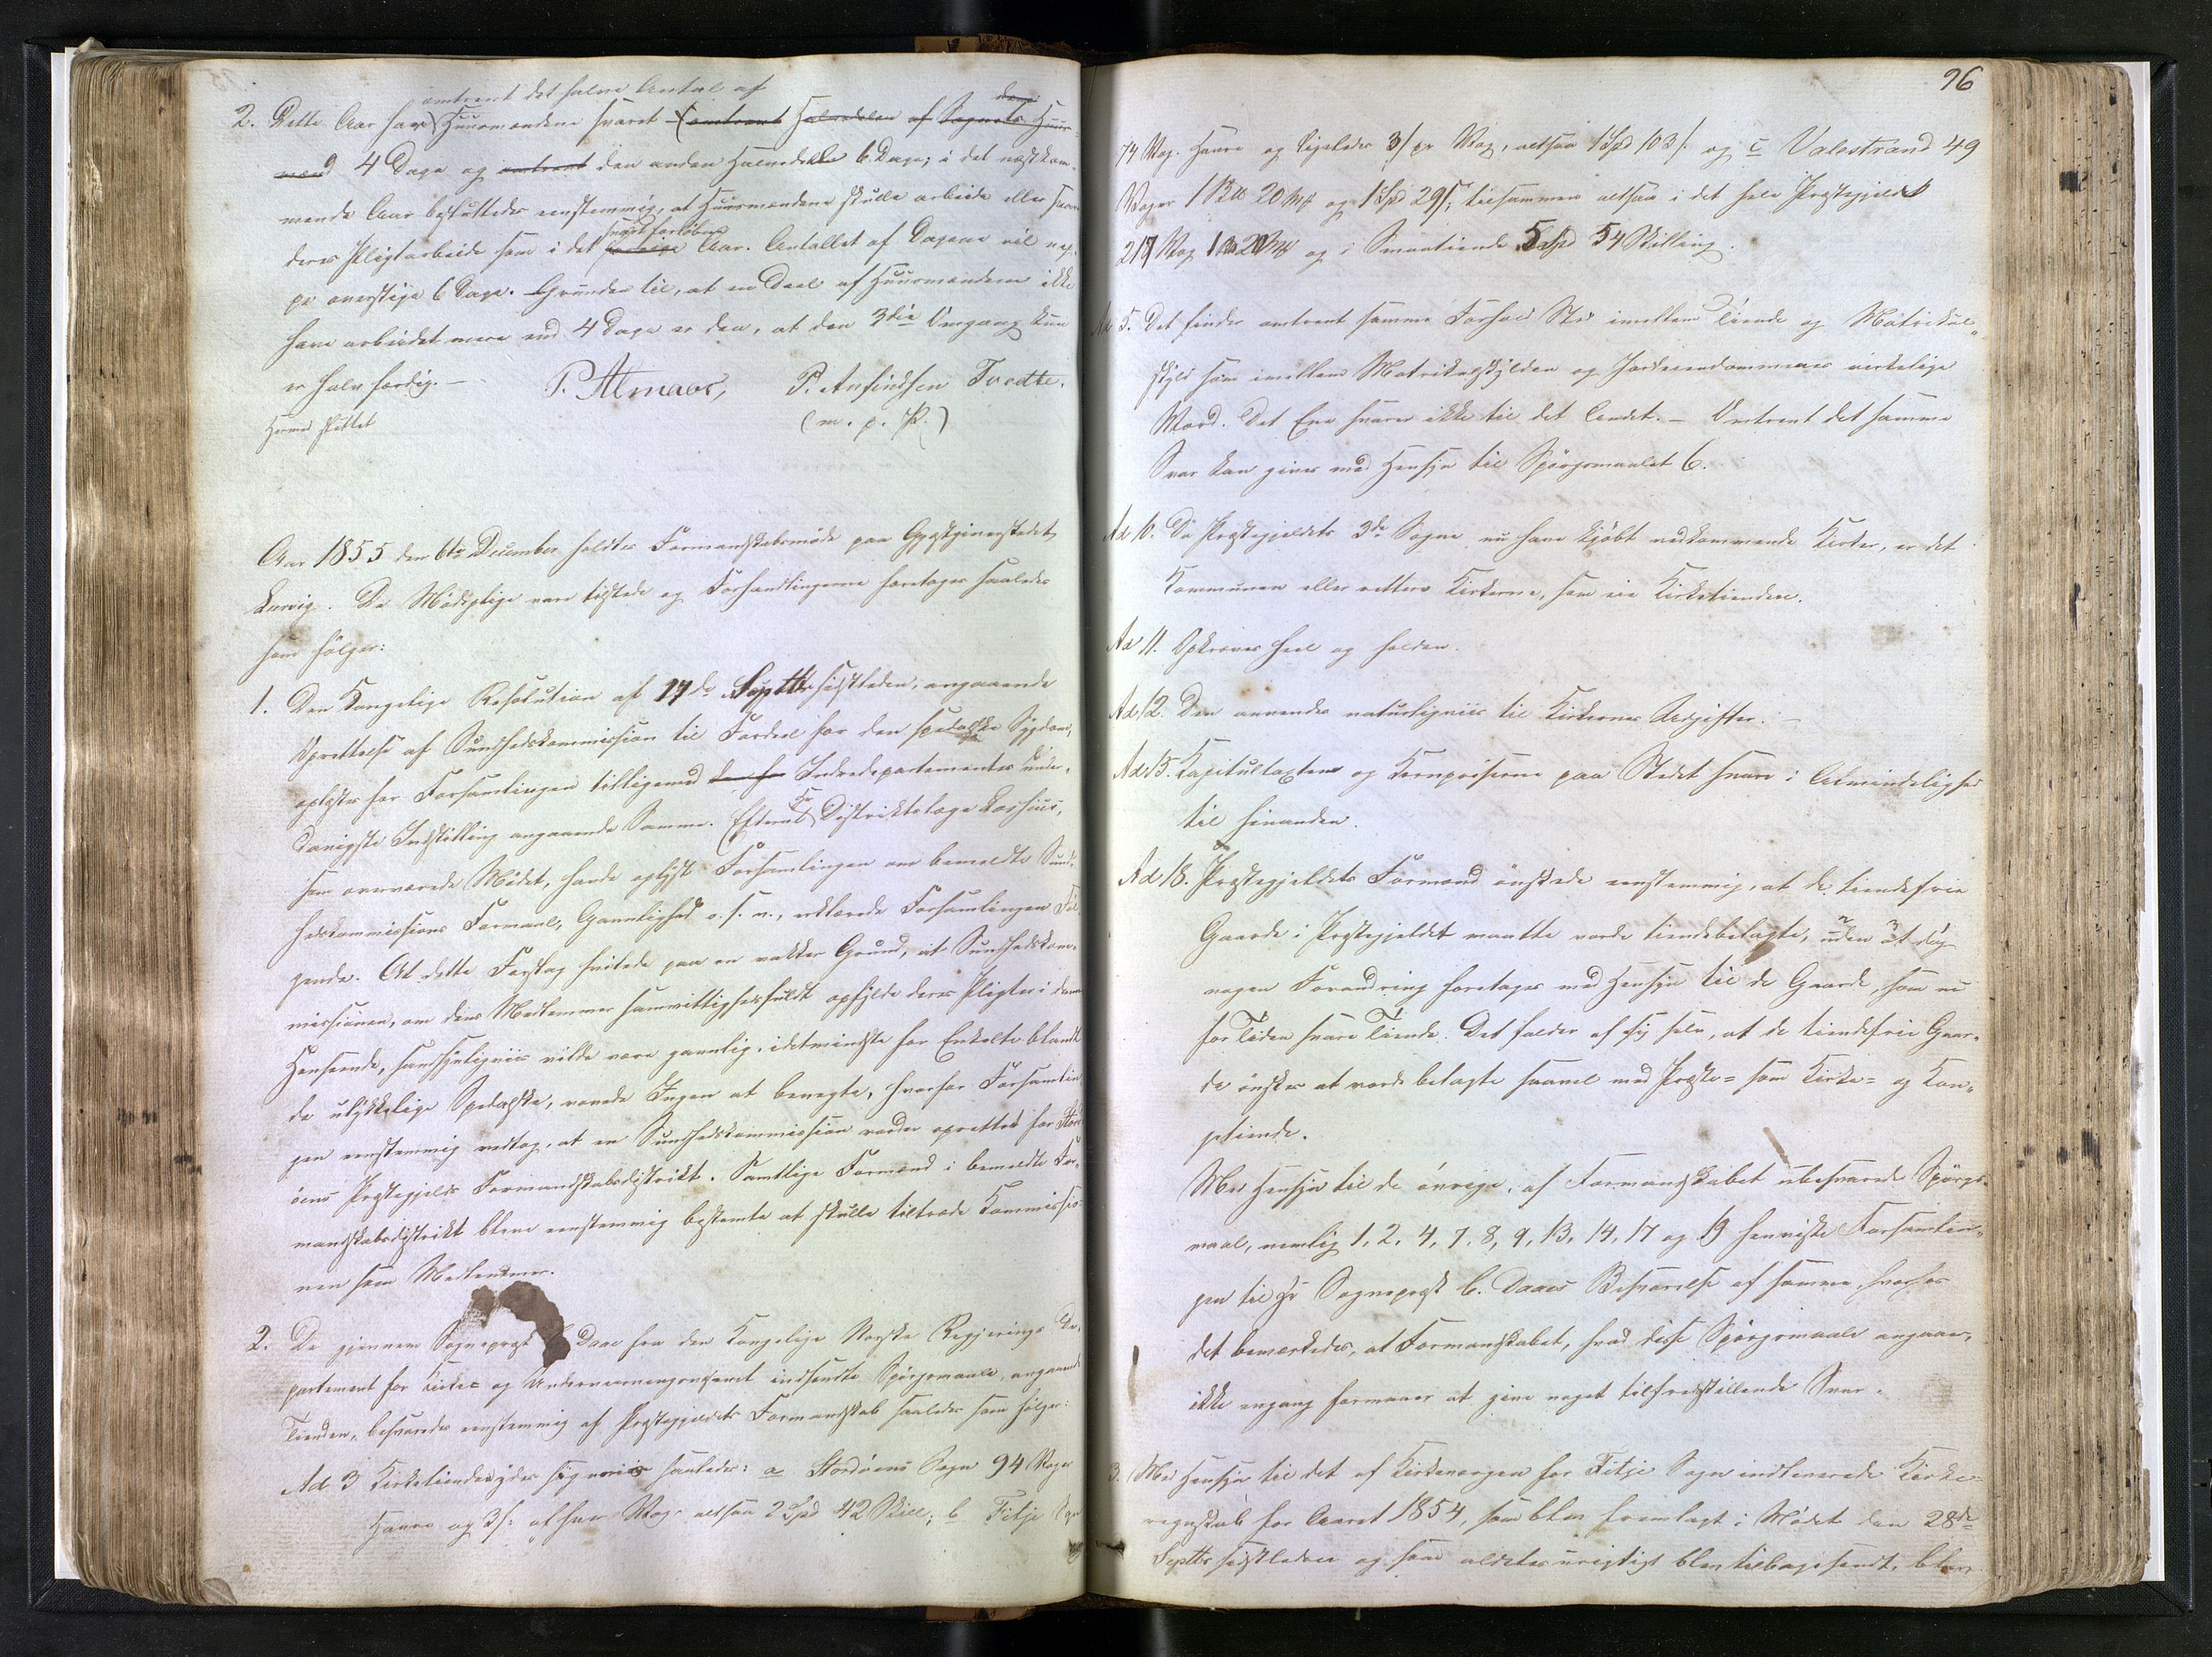 omtrent det halve Antal af
2. Dette Aar har Huusmændene svaret (omtrent Halvdelen af Sognets Huus-
mænd 4 Dage og omtrent den anden Halvdeel 6 Dage; i det næstkom-
mende Aar besluttedes eenstemmig, at Huusmændene skulle arbeide eller svare
næstforløbne
deres Pligtarbeide som i det forrige Aar. Antallet af Dagene vil nep-
pe overstige 6 Dage. Grunden til, at en Deel af Huusmændene ikke
have arbeidet mere end 4 Dage er den, at den 3die Omgang kun
er halv færdig. —
P. Almaas, P. Anfindsen Tvedte.
Hermed sluttet
(m. p. P.)
Aar 1855 den 6te December holdtes Formandskabsmøde paa Gjæstgiverstedet
Lervig. De Mødepligtige vare tilstede og Forhandlingerne foretoges saaledes
som følger:
1. Den Kongelige Resolution af 17de Septbr sidstleden, angaaende
Oprettelse af Sundhedskommission til Fordeel for den spedalske Sygdom,
oplæstes for Forsamlingen tilligemed Indredepartementets under-
danigste Indstilling angaaende Samme. Efterat Hr Distriktslæge
som overværede Mødet, havde oplyst Forsamlingen om bemeldte Sund-
hedskommissions Formaal, Gavnlighed o. s. v., erklærede Forsamlingen Føl-
gende: At dette Forslag hvilede paa en vakker Grund, at Sundhedskom-
missionen, om dens Medlemmer samvittighedsfuldt opfylde deres Pligter i denne
Henseende, sandsynligviis vilde være gavnlig, idetmindste for Enkelte blandt
de ulykkelige Spedalske, vovede Ingen at benegte, hvorfor Forsamlin-
gen eenstemmig vedtog, at en Sundhedskommission vorder oprettet for Stord-
øens Præstegjelds Formandskabsdistrikt. Samtlige Formænd i bemeldte For-
mandskabsdistrikt bleve eenstemmig bestemte at skulle tiltræde Kommissio-
nen som Medlemmer.
2. De gjennem Sognepræst Daae fra den Kongelige Norske Regjerings De-
partement for Kirke- og Underviisningsvæsenet indsendte Spørgsmaale, angaaende
Tienden, besvaredes eenstemmig af Præstegjeldets Formandskab saaledes som følger:
Ad 3 Kirketienden yder sig saaledes: a Stordøens Sogn 94 Voger
Havre og 3 s: af hver Vog altsaa 2 Spd 42 Skill; b Fitje Sogn
96
74 Vog. Havre og ligeledes 3 s pr Vog, altsaa 1 Spd 103 s. og c Valestrand 49
Voger 1 20 og 1 Spd 29 s; tilsammen altsaa i det hele Præstegjeldet
217 Vog og i Smaatiende 5 Spd 54 Skilling.
Ad 5. Det finder omtrent samme Forhold Sted imellem Tiende og Matrikul-
skyld som imellem Matrikulskylden og Jordeiendommenes virkelige
Værd. Det Ene svarer ikke til det Andet. — Omtrent det samme
Svar kan gives med Hensyn til Spørgsmaalet 6.
Ad 10. Da Præstegjeldets 3de Sogne nu have kjøbt vedkommende Kirker, er det
Kommunen eller rettere Kirkerne, som eie Kirketienden.
Ad 11. Opkræves heel og holden.
Ad 12. Den anvendes naturligviis til Kirkernes Udgifter. —
Ad 15. Kapitulstaxterne og Kornpriserne paa Stedet svare i Almindelighed
til hinanden.
Ad 18. Præstegjeldets Formænd ønskede eenstemmig, at de tiendefrie
Gaarde i Præstegjeldet maatte vorde tiendebelagte, uden at dog
nogen Forandring foretages med Hensyn til de Gaarde, som nu
for Tiden svare Tiende. Det falder af sig selv, at de tiendefrie Gaar-
de ønskes at vorde belagte saavel med Præste- som Kirke- og Kon-
getiende.
Med Hensyn til de øvrige, af Formandskabet ubesvarede Spørgs-
maal, nemlig 1, 2, 4, 7, 8, 9, 13, 14, 17 og 19 henviste Forsamlin-
gen til Hr Sognepræst C. Daaes Besvarelse af samme, hvorhos
det bemærkedes, at Formandskabet, hvad disse Spørgsmaale angaaer,
ikke engang formaaer at give noget tilfredsstillende Svar.
3. Med Hensyn til det af Kirkeværgen for Fitje Sogn indleverede Kirke-
regnskab for Aaret 1854, som blev fremlagt i Mødet den 28de
Septbr sidstleden og som aldeles urigtigt blev tilbagesendt, blev